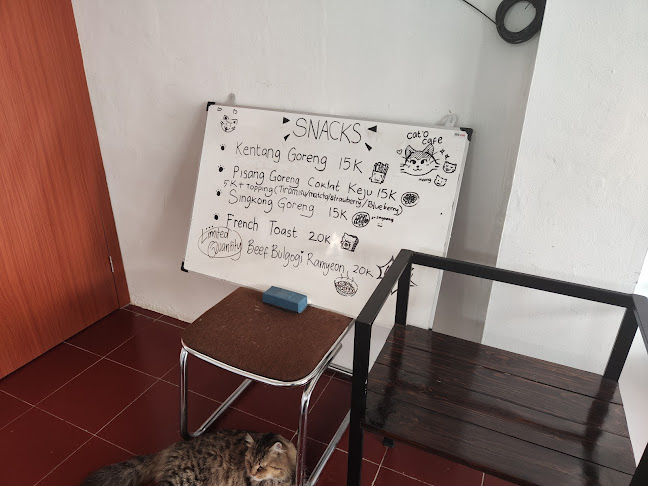 SNACKS
cat'O
cafe
Kentang Goreng 15K
Pisang Goreng Coklat Keju 15K
5K + topping (Tiramisu/matcha/strawberry/Blueberry)
Singkong Goreng 15K
French Toast 20K
Limited
Quantity
Beef Bulgogi Ramyeon, 20K